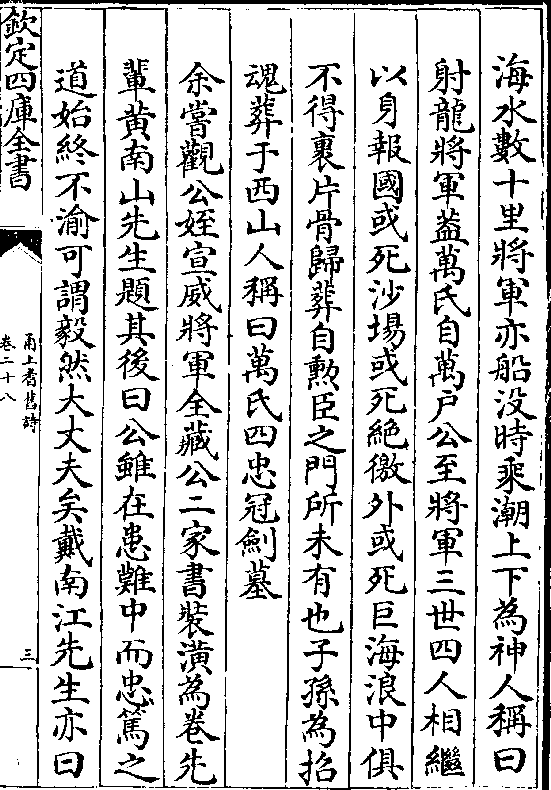 海水數十里將軍亦船没時乘潮上下為神人稱曰
射龍將軍葢萬氏自萬户公至將軍三世四人相繼
以身報國或死沙場或死絶徼外或死巨海浪中俱
不得裹片骨歸葬自勲臣之門所未有也子孫為招
魂葬于西山人稱曰萬氏四忠冠劍墓
余嘗觀公姪宣威將軍全藏公二家書裝潢為卷先
輩黄南山先生題其後曰公雖在患難中而忠篤之
道始終不渝可謂毅然大丈夫矣戴南江先生亦曰
欽定四庫全書
甬上耆舊詩
卷二十八
三